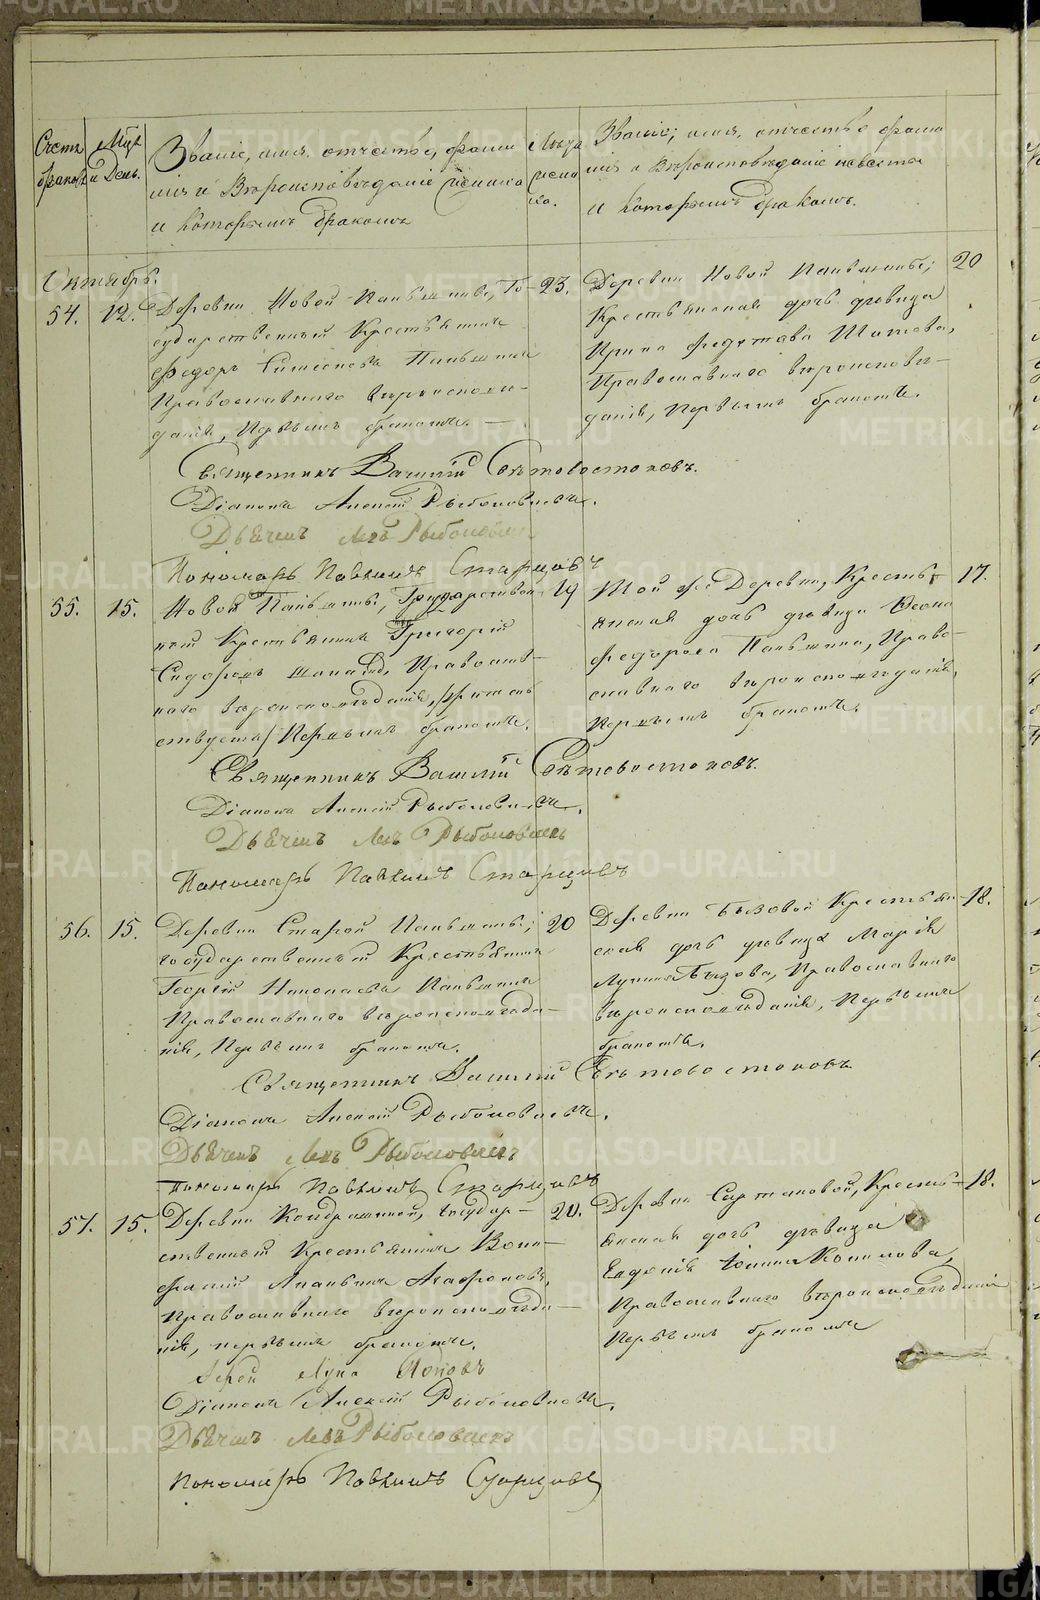 Счетъ браковъ
Мѣся и День.
Званіе, имя, отчество, фами
лія и Вѣроисповѣданіе жениха
и которымъ бракомъ
Лѣта жени ха.
Званіе, имя, отчество фами
лія и Вѣроисповѣданіе невѣсты
и которымъ бракомъ.
Октябрь.
54. 12. Деревни Новой Паньшиной, Го- 23.
сударственный Крестьянинъ
Федоръ Симеоновъ Паньшинъ
Православнаго вѣроисповѣ-
данія, Первымъ бракомъ.
Деревни Новой Паньшиной, 20
Крестьянская дочь дѣвица
Ирина Федотова Шитова,
Православнаго вѣроисповѣ-
данія, Первымъ бракомъ.
Священникъ Василій Свѣтовостоковъ.
Діаконъ Алексѣй Рыболовлевъ.
Дьячекъ Левъ Рыболовлевъ
Пономарь Павлинъ Старцовъ
55. 15. Новой Паньшиной, Государствен 19
ный Крестьянинъ Григорій
Сидоровъ Православ-
наго вѣроисповѣданія, жительствуетъ
Первымъ бракомъ.
Той же Деревни, Кресть- 17.
янская дочь дѣвица
Федорова Паньшина, Право-
славнаго вѣроисповѣданія,
Первымъ бракомъ.
Священникъ Василій Свѣтовостоковъ.
Діаконъ Алексѣй Рыболовлевъ.
Дьячекъ Левъ Рыболовлевъ
Пономарь Павлинъ Старцовъ
56. 15. Деревни Старой Паньшиной, 20
Государственный Крестьянинъ
Георгій Николаевъ Паньшинъ
Православнаго вѣроисповѣда-
нія, Первымъ бракомъ.
Деревни Бызовой Крестьян- 18.
ская дочь дѣвица Марія
Лукина Бызова, Православнаго
вѣроисповѣданія, Первымъ
бракомъ.
Священникъ Василій Свѣтовостоковъ.
Діаконъ Алексѣй Рыболовлевъ.
Дьячекъ Левъ Рыболовлевъ
Пономарь Павлинъ Старцовъ
57. 15. Деревни Кондрашиной, Государ- 20.
ственный Крестьянинъ Вони-
фатій Ананьинъ Агафоновъ,
Православнаго вѣроисповѣда-
нія, первымъ бракомъ.
Деревни Сартаковой, Кресть- 18.
янская дочь дѣвица
Евдокія Копылова,
Православнаго вѣроисповѣданія
Первымъ бракомъ
Іерей Лука Поповъ
Діаконъ Алексѣй Рыболовлевъ.
Дьячекъ Левъ Рыболовлевъ
Пономарь Павлинъ Старцовъ
METRIKI.GASO-URAL.RU